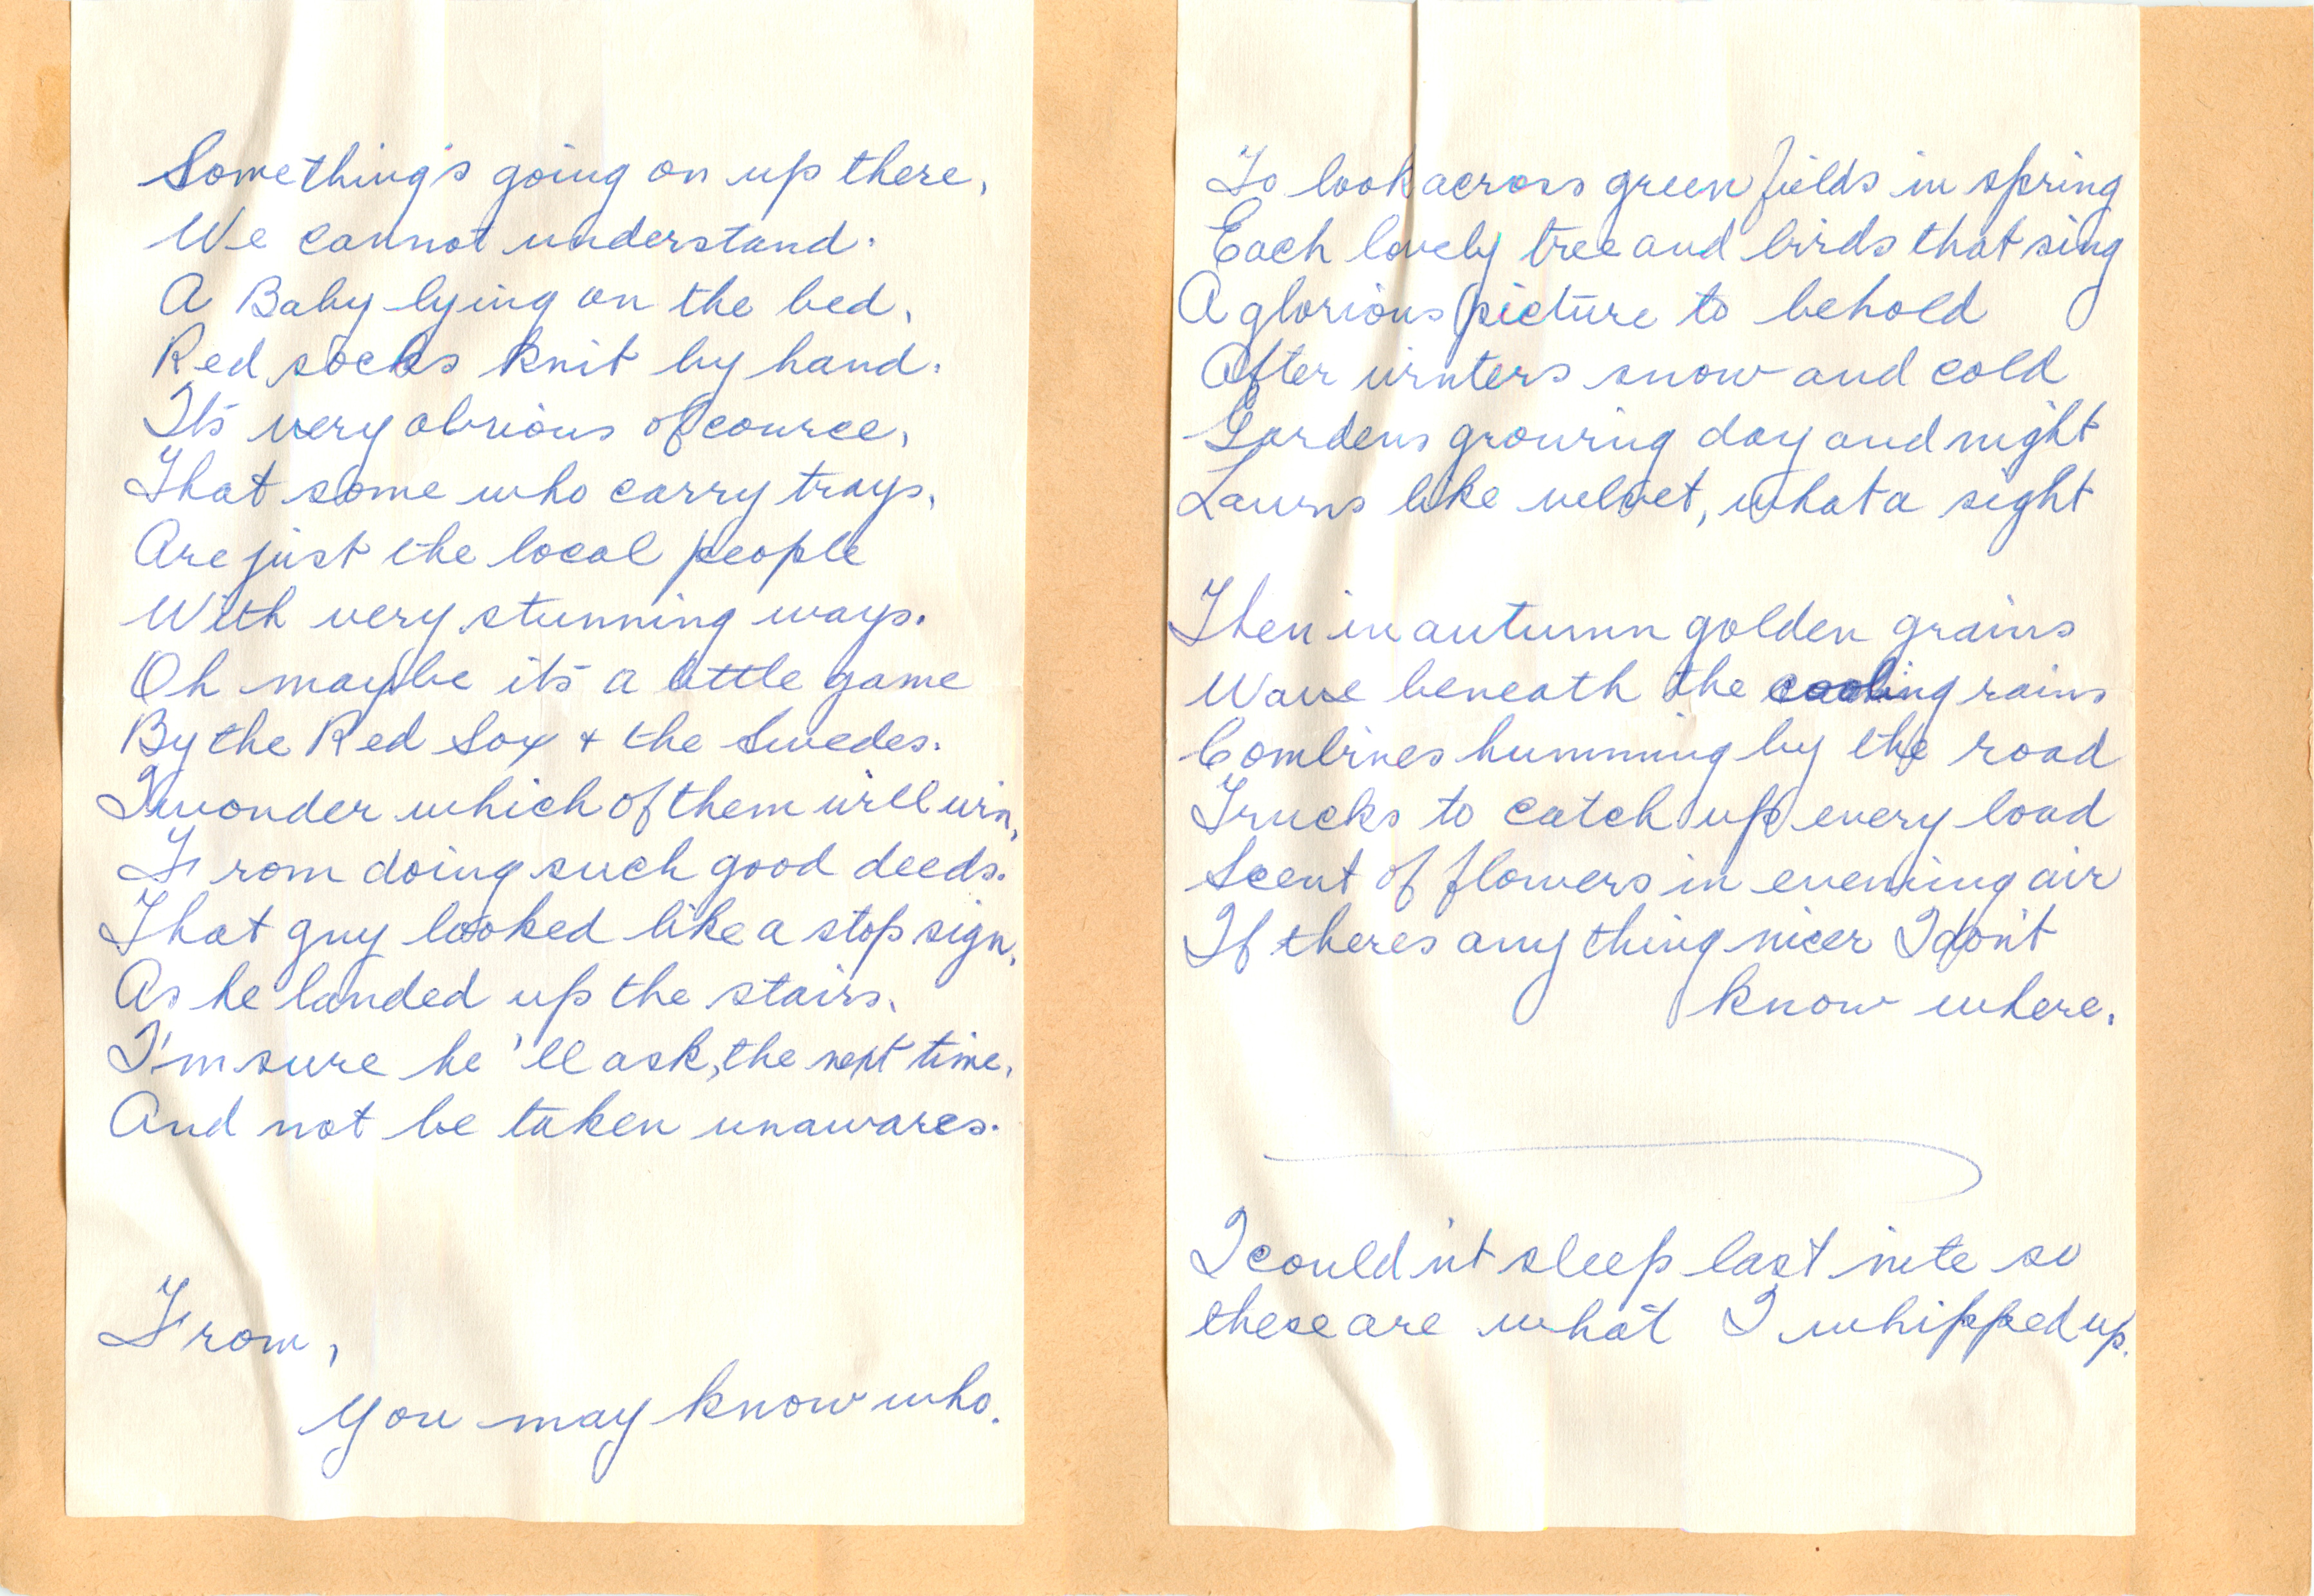 Something's going on up there,
We cannot understand.
A Baby lying on the bed,
Red socks knit by hand.
It's very obvious of cource,
That some who carry trays,
Are just the local people
With very stunning ways.
Oh maybe it's a little game
By the Red Sox + the Swedes.
I wonder which of them will win,
From doing such good deeds.
That guy looked like a stop sign,
As he landed up the stairs,
I'm sure he'll ask, the next time,
And not be taken unawares.
From,
You may know who.
To look across green fields in spring
Each lovely tree and birds that sing
A glorious picture to behold
After winters snow and cold
Gardens growing day and night
Lawns like velvet, what a sight
Then in autumn golden grains
Wave beneath the cooling rains
Combines humming by the road
Trucks to catch up every load
Scent of flowers in evening air
If theres any thing nicer I don't
know where.
I could n't sleep last nite so
these are what I whipped up.